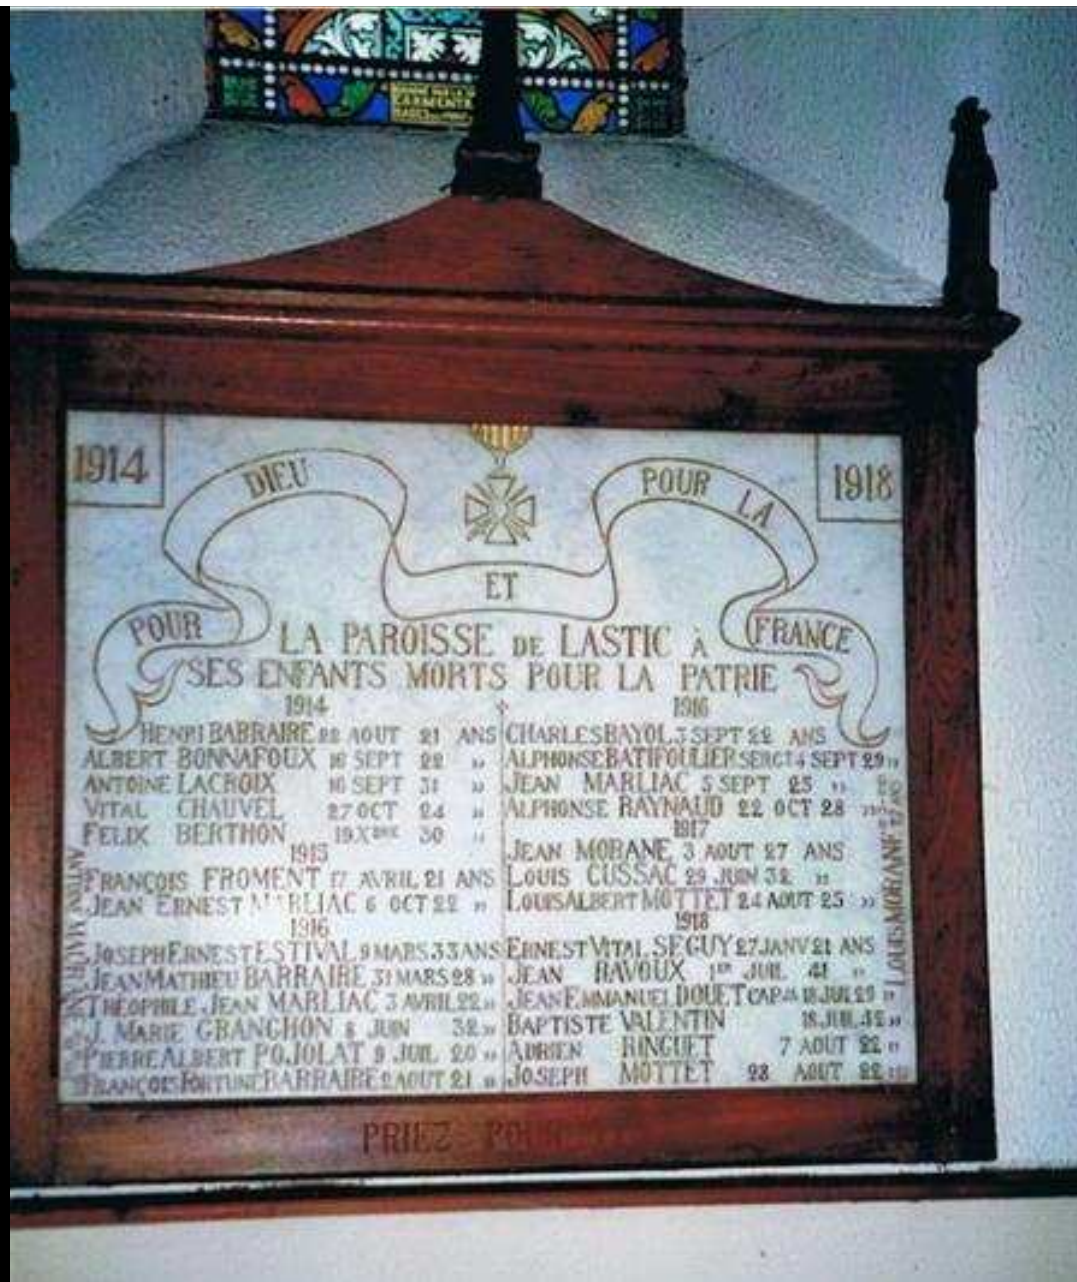 CARMENTR
1914
1918
POUR DIEU ET POUR LA FRANCE
LA PAROISSE DE LASTIC À
SES ENFANTS MORTS POUR LA PATRIE
1914
HENRI BARRAIRE 22 AOUT 21 ANS
ALBERT BONNAFOUX 16 SEPT 22 "
ANTOINE LACROIX 16 SEPT 31 "
VITAL CHAUVEL 27 OCT 24 "
FELIX BERTHON 19 XBRE 30 "
1915
FRANÇOIS FROMENT 17 AVRIL 21 ANS
JEAN ERNEST MARLIAC 6 OCT 22 "
1916
JOSEPH ERNEST ESTIVAL 9 MARS 33 ANS
JEAN MATHIEU BARRAIRE 31 MARS 28 "
THÉOPHILE JEAN MARLIAC 3 AVRIL 22 "
J. MARIE GRANCHON 6 JUIN 32 "
PIERRE ALBERT POJOLAT 9 JUIL 20 "
FRANÇOIS FORTUNÉ BARRAIRE 2 AOUT 21 "
1916
CHARLES BAYOL 3 SEPT 22 ANS
ALPHONSE BATIFOULIER SERGT 4 SEPT 29 "
JEAN MARLIAC 5 SEPT 25 "
ALPHONSE RAYNAUD 22 OCT 28 "
1917
JEAN MORANE 3 AOUT 27 ANS
LOUIS CUSSAC 29 JUIN 32 "
LOUIS ALBERT MOTTET 24 AOUT 25 "
1918
ERNEST VITAL SEGUY 27 JANV 21 ANS
JEAN RAVOUX 1ER JUIL 41 "
JEAN EMMANUEL DOUET CAP 18 JUIL 29 "
BAPTISTE VALENTIN 18 JUIL 42 "
ADRIEN RINGUET 7 AOUT 22 "
JOSEPH MOTTET 28 AOUT 22
LOUIS MORANE
PRIEZ POUR